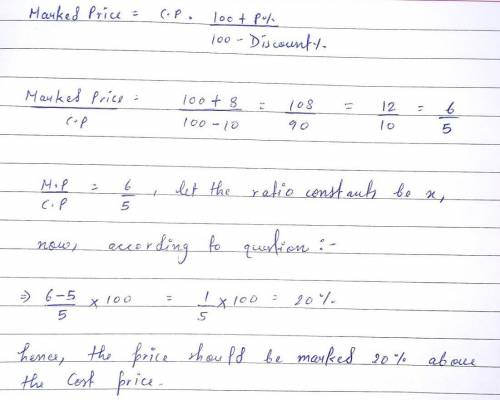 Marked Price = C.P. 100 + P%
100 - Discount%.
Marked Price = 100 + 8 = 108 = 12 = 6
C.P 100 - 10 90 10 5
M.P = 6 , let the ratio constants be x,
C.P 5
now, according to question :-
⇒ 6-5 × 100 = 1 × 100 = 20%.
5 5
hence, the price should be marked 20% above
the Cost price.